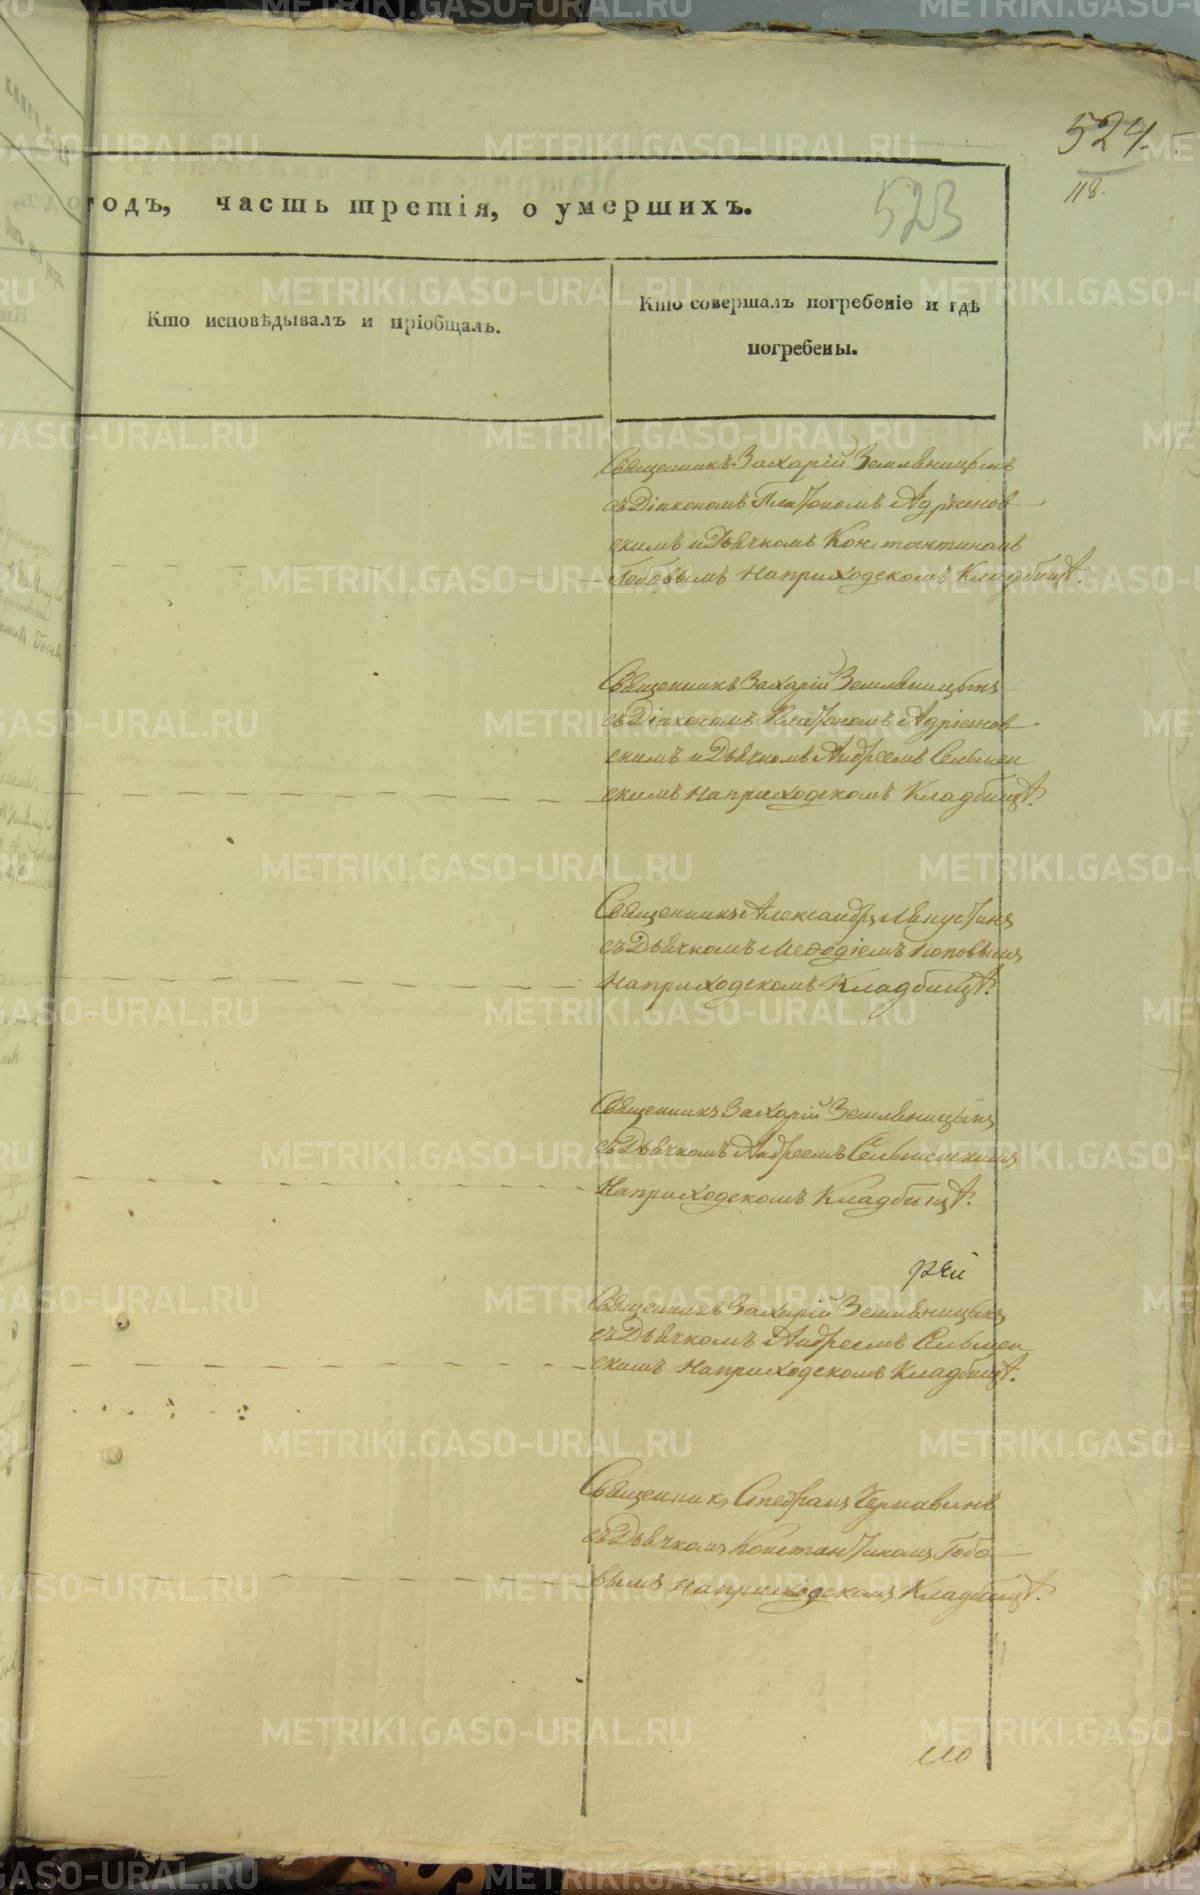 524.
118.
523
годъ, часть третія, о умершихъ.
Кто исповѣдывалъ и пріобщалъ.
Кто совершалъ погребеніе и гдѣ
погребены.
Священникъ Захарій Земляницынъ
съ Діакономъ Платономъ Адріанов
скимъ и Дьячкомъ Константиномъ
Гобовымъ на приходскомъ Кладбищѣ.
Священникъ Захарій Земляницынъ
съ Діакономъ Платономъ Адріанов
скимъ и Дьячкомъ Андреемъ Сельмен
скимъ на приходскомъ Кладбищѣ.
Священникъ Александръ
съ Дьячкомъ Меѳодіемъ Поповымъ
на приходскомъ Кладбищѣ.
Священникъ Захарій Земляницынъ
съ Дьячкомъ Андреемъ Сельменскимъ
на приходскомъ Кладбищѣ.
рей
Священникъ Захарій Земляницынъ
съ Дьячкомъ Андреемъ Сельмен
скимъ на приходскомъ Кладбищѣ.
Священникъ Стефанъ Чернавинъ
съ Дьячкомъ Константиномъ Гобо
вымъ на приходскомъ Кладбищѣ.
METRIKI.GASO-URAL.RU